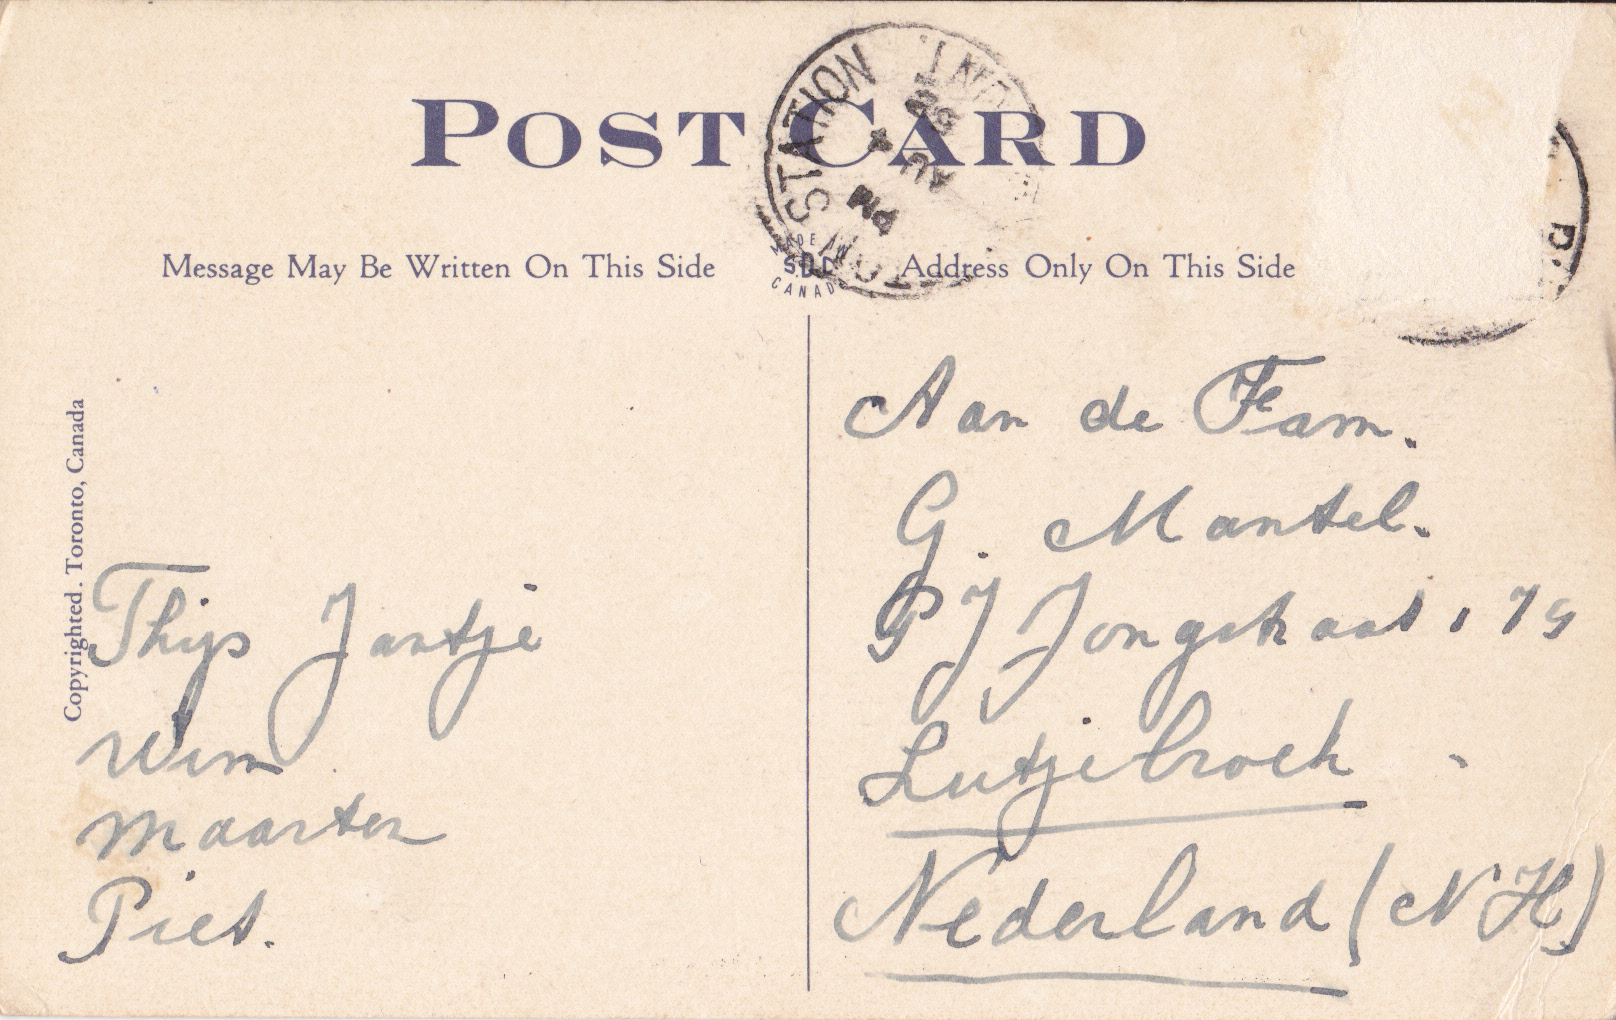 POST CARD
STATION
ONT
PM
AU 4
52
Message May Be Written On This Side
MADE IN
S.D.C
CANADA
Address Only On This Side
Copyrighted. Toronto, Canada
Thijs Jantje
Wim
Maarten
Piet.
Aan de Fam.
G. Mantel.
P J Jongstraat, 79
Lutjebroek
Nederland (NH)